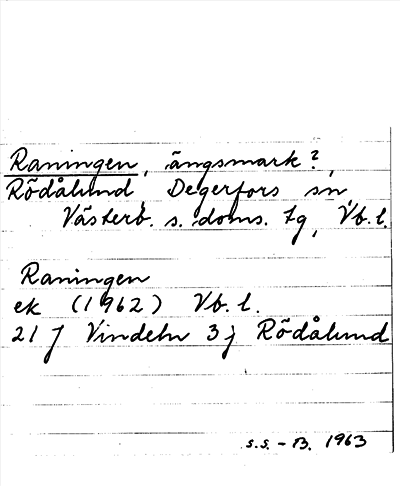 Raningen, ängsmark?,
Rödålund, Degerfors sn,
Västerb. s. doms. tg, Vb. l.
Raningen
ek (1962) Vb. l.
21 J Vindeln 3 j Rödålund
S.S. - B. 1963